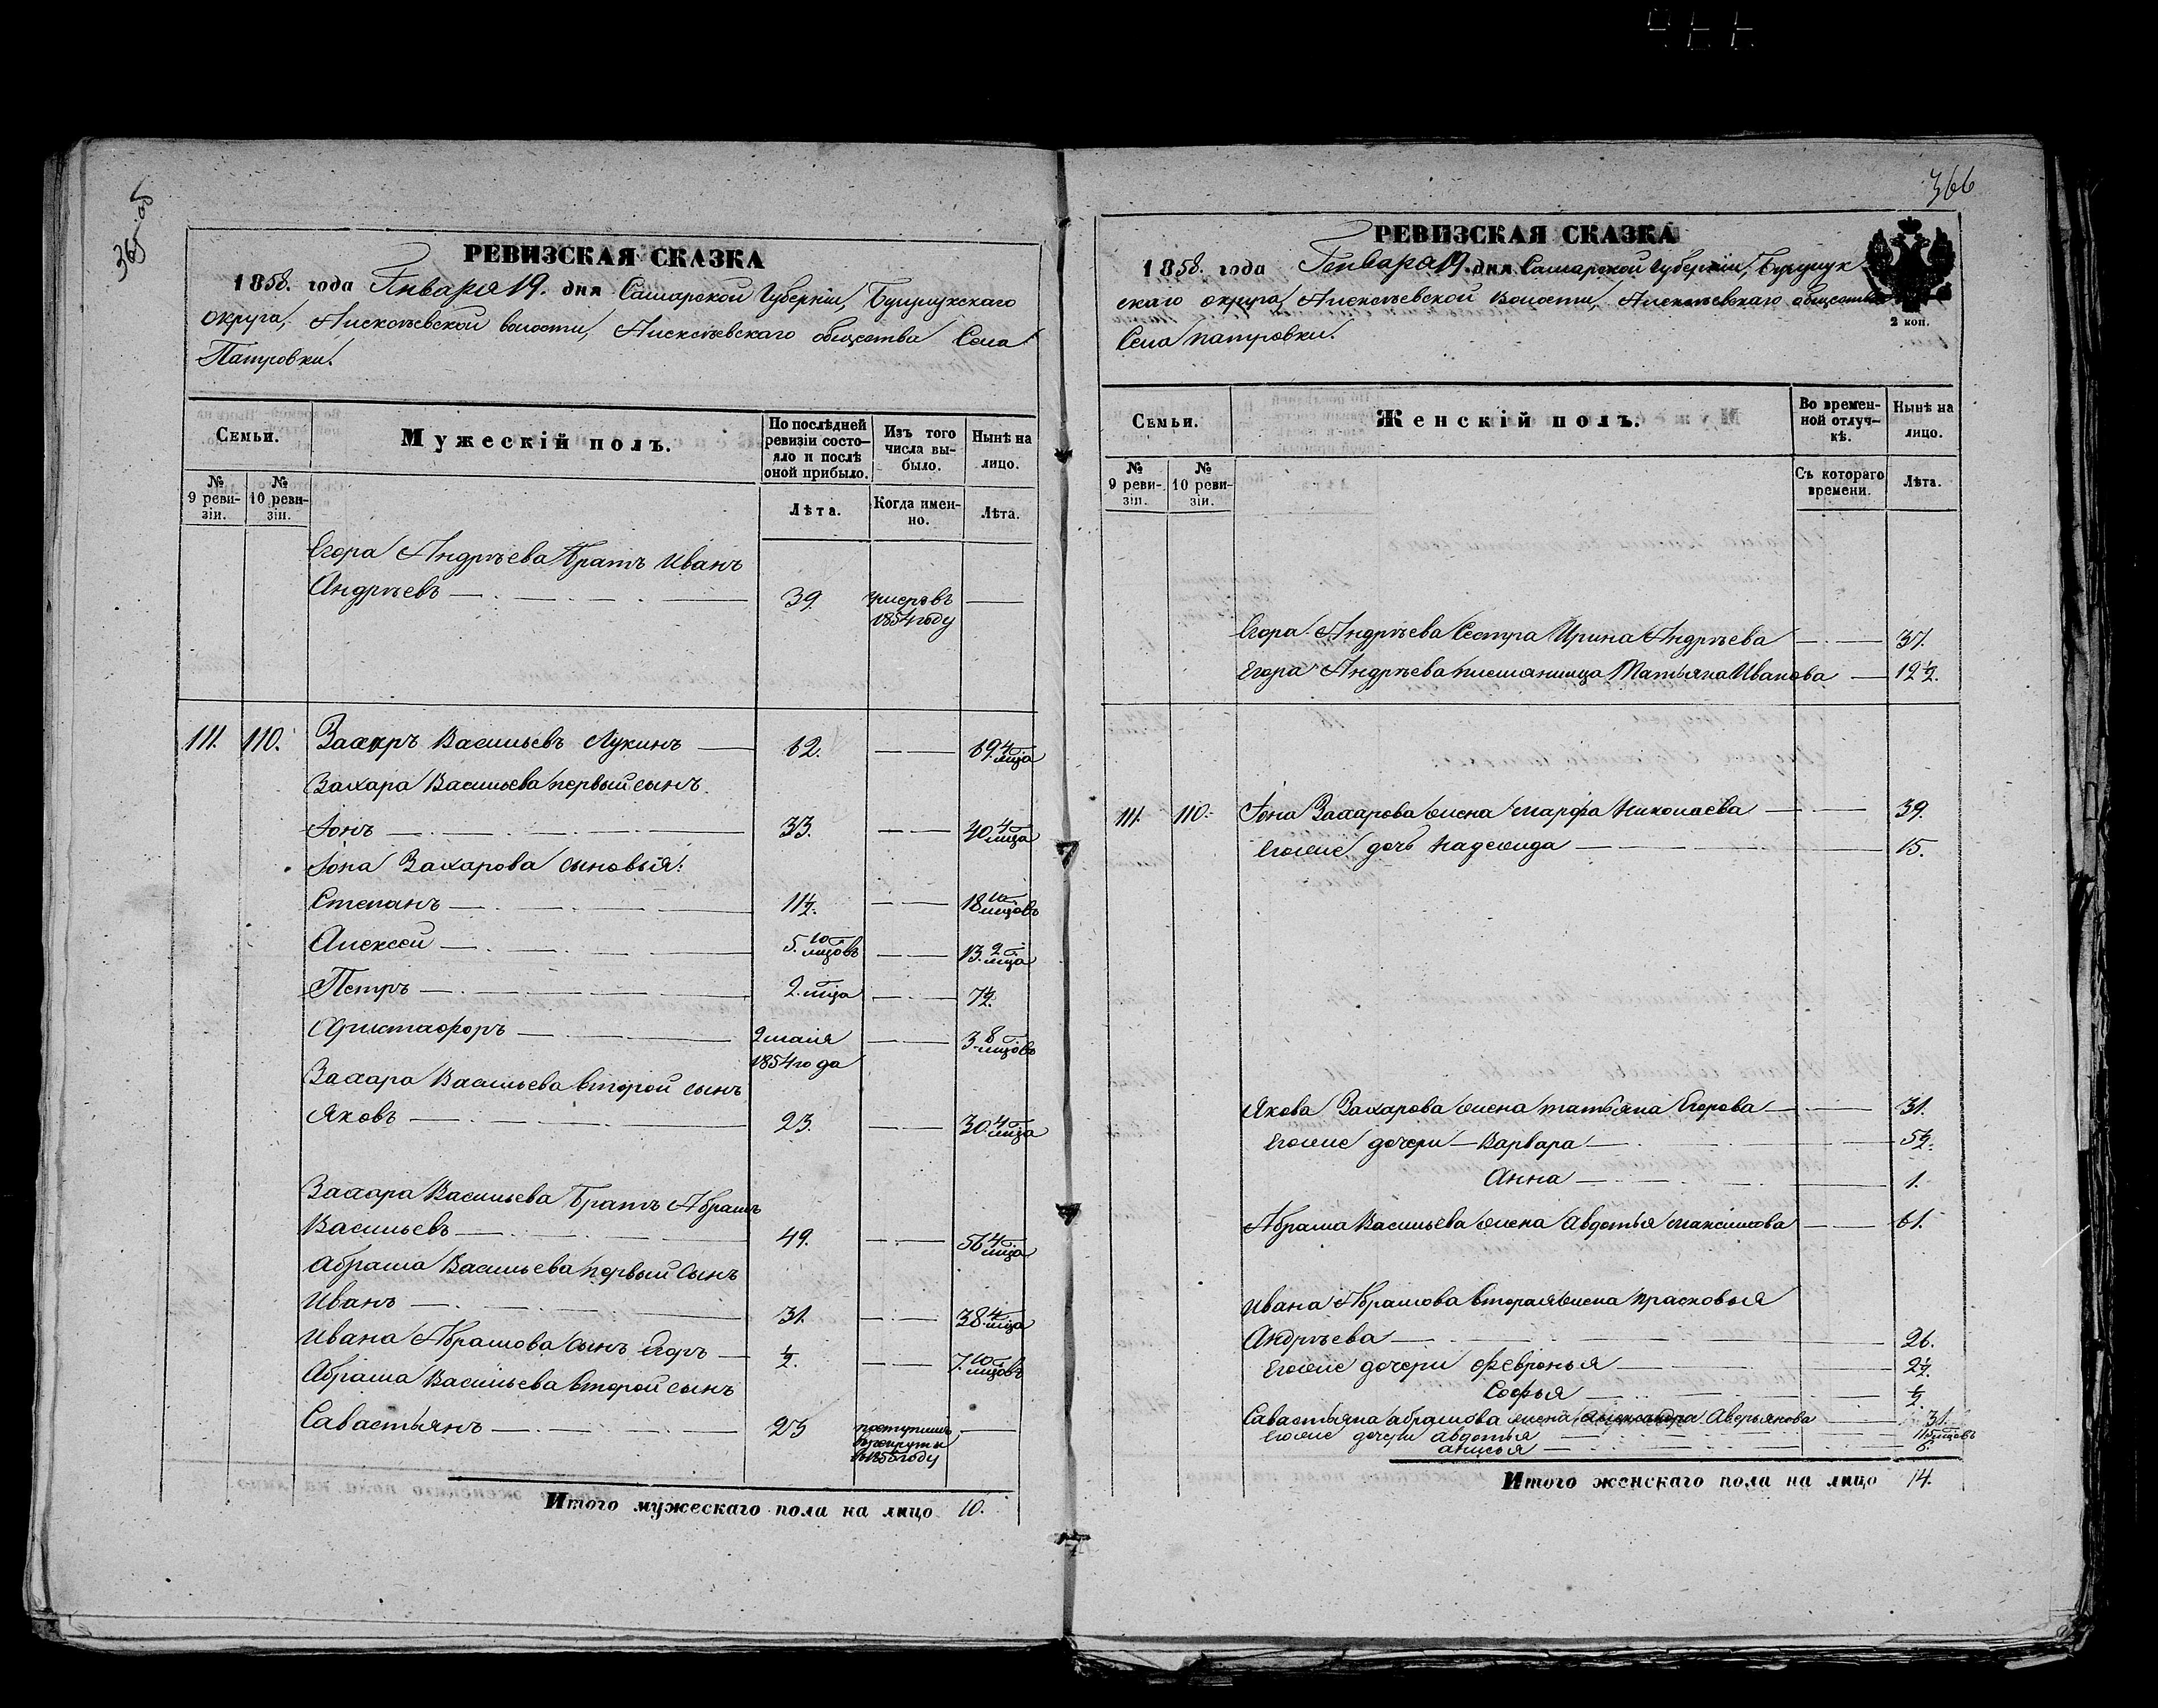 365 об
РЕВИЗСКАЯ СКАЗКА
1858. года Генваря 19. дня Самарской Губерніи, Бузулукскаго
округа, Алексѣевской волости, Алексѣевскаго общества Села
Патровки.
Семьи.
Мужескій полъ.
По послѣдней ревизіи состояло и послѣ оной прибыло.
Изъ того числа выбыло.
Нынѣ на лицо.
№ 9 ревизіи.
№ 10 ревизіи.
Лѣта.
Когда именно.
Лѣта.
Егора Андрѣева братъ Иванъ
Андрѣевъ 39. умеръ въ
1854 году
111. 110. Захаръ Васильевъ Лукинъ 62. 69. 4 мца
Захара Васильева первый сынъ
Іонъ 33. 40. 4 мца
Іона Захарова сыновья:
Степанъ 11½. 18. 10 мцовъ
Алексей 5. 10 мцовъ 13. 2 мца
Петръ 2. мца 7½.
Христафоръ 2 маія
1854 года 3. 8 мцовъ
Захара Васильева второй сынъ
Яковъ 23. 30. 4 мца
Захара Васильева братъ Абрамъ
Васильевъ 49. 56. 4 мца
Абрама Васильева первый сынъ
Иванъ 31. 38. 4 мца
Ивана Абрамова сынъ Егоръ ½. 7. 10 мцовъ
Абрама Васильева второй сынъ
Савастьянъ 23 поступилъ
в рекруты
в 1855 году
Итого мужескаго пола на лицо 10.
366
РЕВИЗСКАЯ СКАЗКА
1858. года Генваря 19. дня Самарской Губерніи, Бузулук
скаго округа, Алексѣевской волости, Алексѣевскаго общества
Села Патровки.
2 коп.
Семьи.
Женскій полъ.
Во временной отлучкѣ.
Нынѣ на лицо.
№ 9 ревизіи.
№ 10 ревизіи.
Съ котораго времени.
Лѣта.
Егора Андрѣева Сестра Ирина Андрѣева 37.
Егора Андрѣева племянница Татьяна Иванова 12½.
111. 110. Іона Захарова жена Марфа Николаева 39.
Егоже дочь Надежда 15.
Якова Захарова жена Татьяна Егорова 31.
Егоже дочери Варвара 5½.
Анна 1.
Абрама Васильева жена Авдотья Максимова 61.
Ивана Абрамова вторая жена Прасковья
Андрѣева 26.
Егоже дочери Февронья 2½.
Софья ½.
Савастьяна Абрамова жена Александра Аверьянова 31.
Егоже дочери Авдотья
Анисья 6.
Итого женскаго пола на лицо 14.